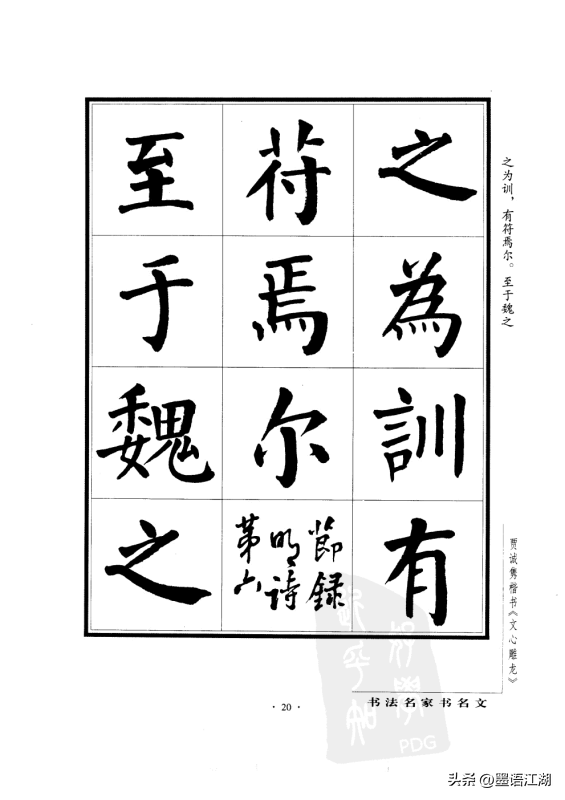 之為訓有
符焉尔
節録
明詩
第六
至于魏之
之为训，有符焉尔。至于魏之
贾诚隽楷书《文心雕龙》
书法名家书名文
· 20 ·
PDG
头条@墨语江湖